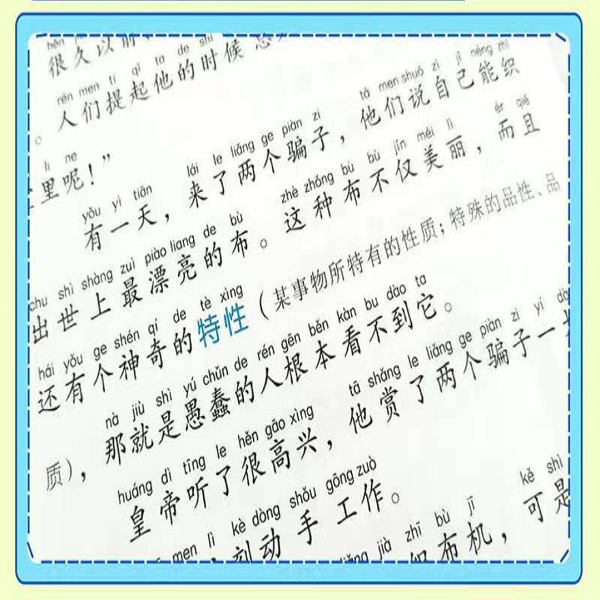 很久以前
rén men tí qǐ tā de shí
。人们提起他的时候
lǐ ne
里呢！”
yǒu yì tiān lái le liǎng ge piàn zi tā men shuō zì jǐ néng zhī
有一天，来了两个骗子，他们说自己能织
chu shì shàng zuì piào liang de bù zhè zhǒng bù bù jǐn měi lì ér qiě
出世上最漂亮的布。这种布不仅美丽，而且
hái yǒu ge shén qí de tè xìng
还有个神奇的特性（某事物所特有的性质；特殊的品性、品
nà jiù shì yú chǔn de rén gēn běn kàn bu dào ta
质），那就是愚蠢的人根本看不到它。
huáng dì tīng le hěn gāo xìng tā shǎng le liǎng ge piàn zi yí
皇帝听了很高兴，他赏了两个骗子一
men lì kè dòng shǒu gōng zuò
刻动手工作。
jià zhī bù jī kě shì
布机，可是